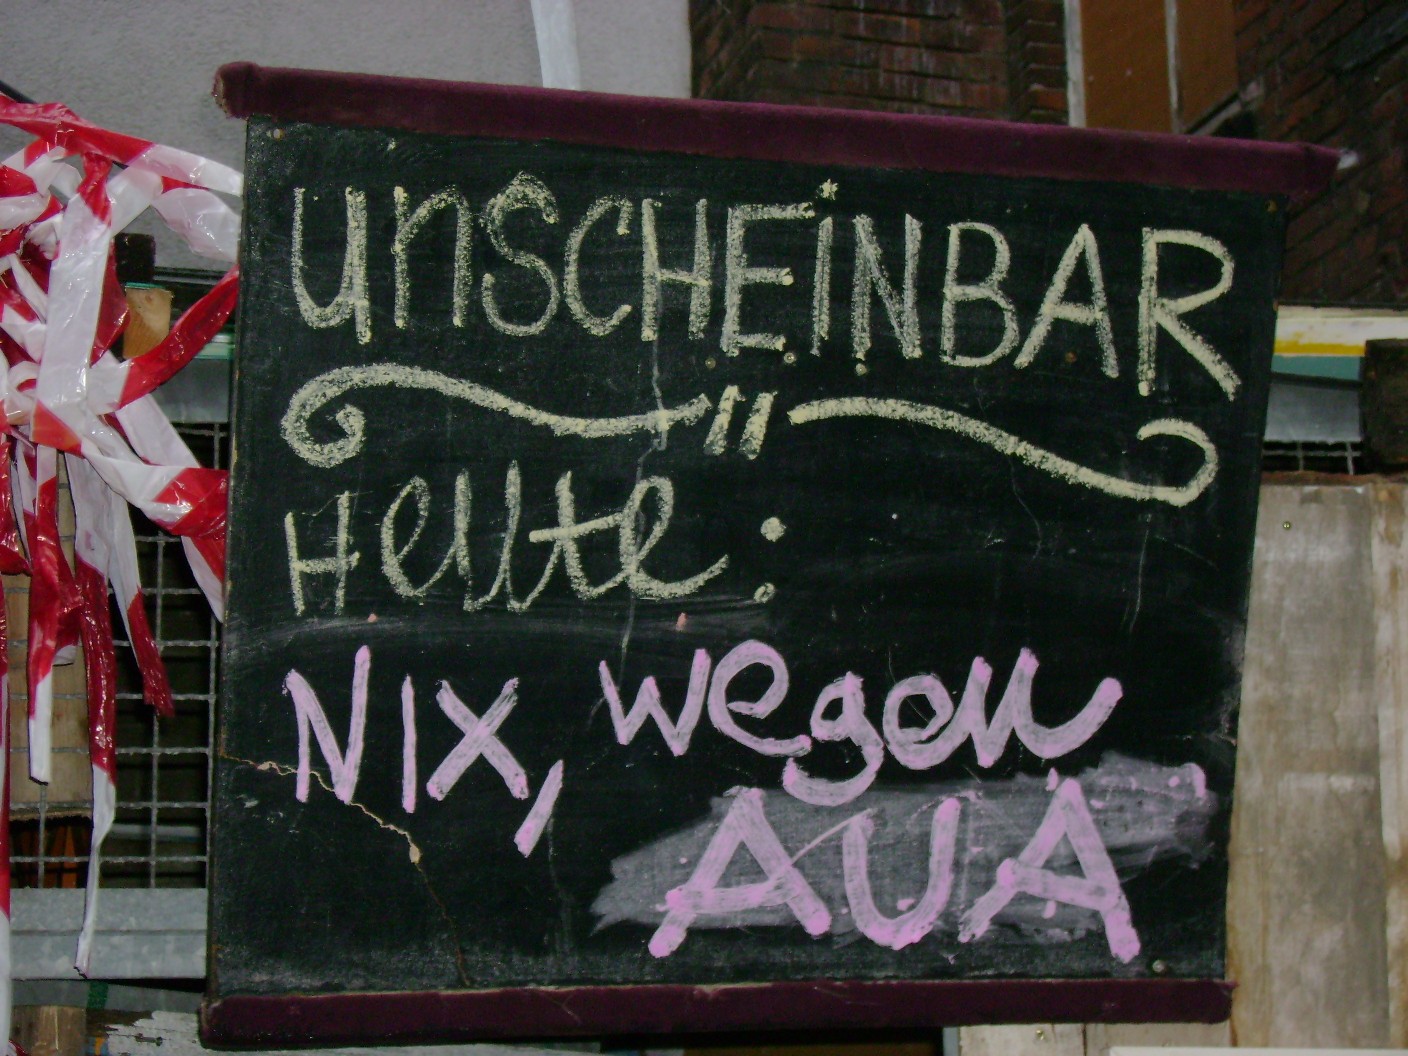 unSCHEiNBAR
"
Heute:
Nix, wegen
AUA